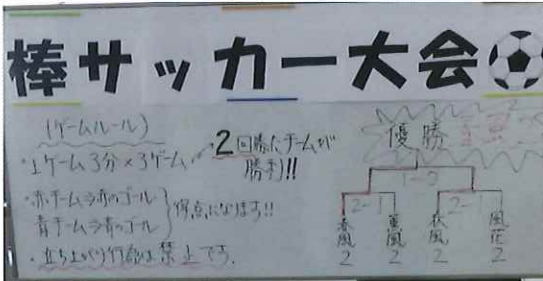 棒サッカー大会
(ゲームルール)
・1ゲーム3分×3ゲーム
2回勝ったチームが
勝利!!
・赤チーム→赤のゴール
青チーム→青のゴール
得点になります!!
・立ち上がり行為は禁止です。
優勝
2-1
2-1
春風2
薫風2
春風2
風花2